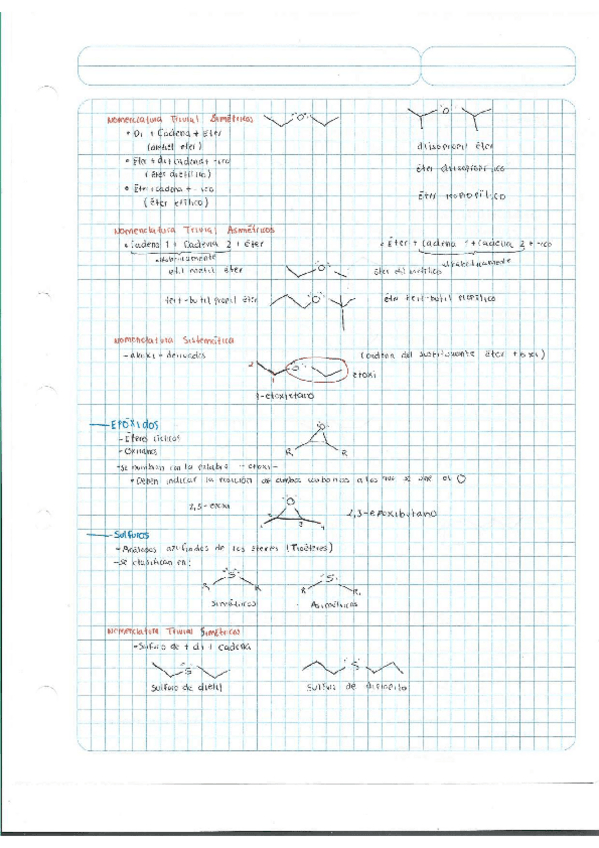 Nomenclatura Trivial Simétricos
• Di + Cadena + Éter
O
diisopropil éter
• Éter + di + cadena + -ico
(éter dietílico)
éter diisopropílico
• Éter + cadena + -ico
(éter etílico)
Éter isopropílico
Nomenclatura Trivial Asimétricos
• Cadena 1 + Cadena 2 + éter
• Éter + Cadena 1 + Cadena 2 + -ico
alfabéticamente
alfabéticamente
etil metil éter
O
éter etil metílico
tert-butil propil éter
O
éter tert-butil propílico
Nomenclatura Sistemática
- alcoxi - derivados
(cadena del sustituyente éter + oxi)
2
1
O
etoxi
1-etoxietano
EPÓXIDOS
- Éteres cíclicos
- Oxiranos
O
R
R
- Se nombran con la palabra -epoxi-
• Deben indicar la posición de ambos carbonos a los que se une el O
O
2,3-epoxibutano
1
2
3
4
Sulfuros
- Análogos azufrados de los éteres (Tioéteres)
- Se clasifican en:
S
R
R
S
R
R,
Simétricos
Asimétricos
Nomenclatura Trivial Simétricos
- Sulfuro de + di + cadena
S
S
Sulfuro de dietil
Sulfuro de